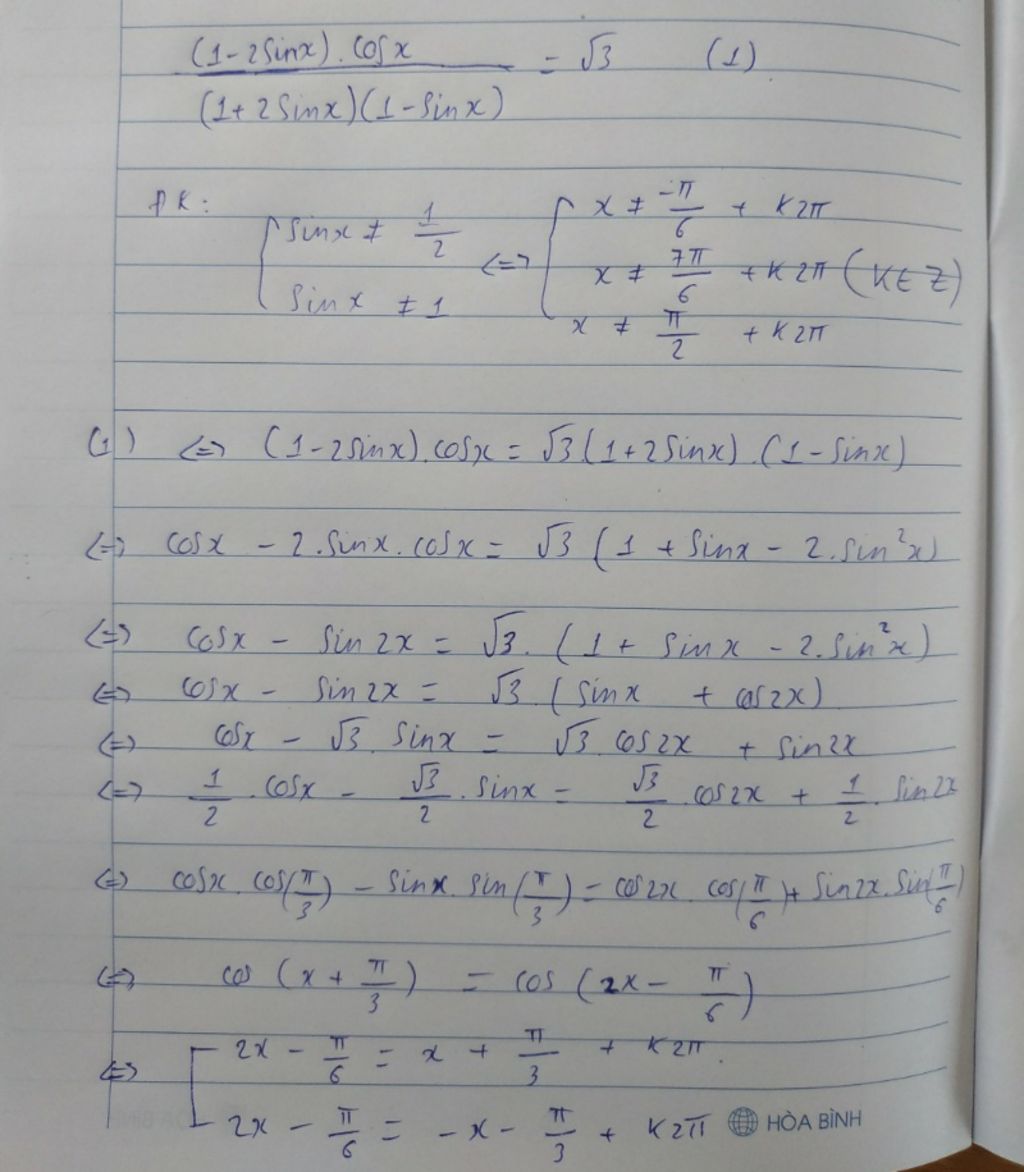 (1-2sinx).cosx / (1+2sinx)(1-sinx) = √3 (1)
ĐK: { sinx ≠ 1/2 ; sinx ≠ 1 <=> { x ≠ -π/6 + k2π ; x ≠ 7π/6 + k2π (k∈Z) ; x ≠ π/2 + k2π
(1) <=> (1-2sinx).cosx = √3(1+2sinx).(1-sinx)
<=> cosx - 2.sinx.cosx = √3 (1 + sinx - 2.sin²x)
<=> cosx - sin2x = √3.(1 + sinx - 2.sin²x)
<=> cosx - sin2x = √3.(sinx + cos2x)
<=> cosx - √3.sinx = √3.cos2x + sin2x
<=> 1/2.cosx - √3/2.sinx = √3/2.cos2x + 1/2.sin2x
<=> cosx.cos(π/3) - sinx.sin(π/3) = cos2x.cos(π/6) + sin2x.sin(π/6)
<=> cos(x + π/3) = cos(2x - π/6)
<=> [ 2x - π/6 = x + π/3 + k2π.
2x - π/6 = -x - π/3 + k2π
HÒA BÌNH